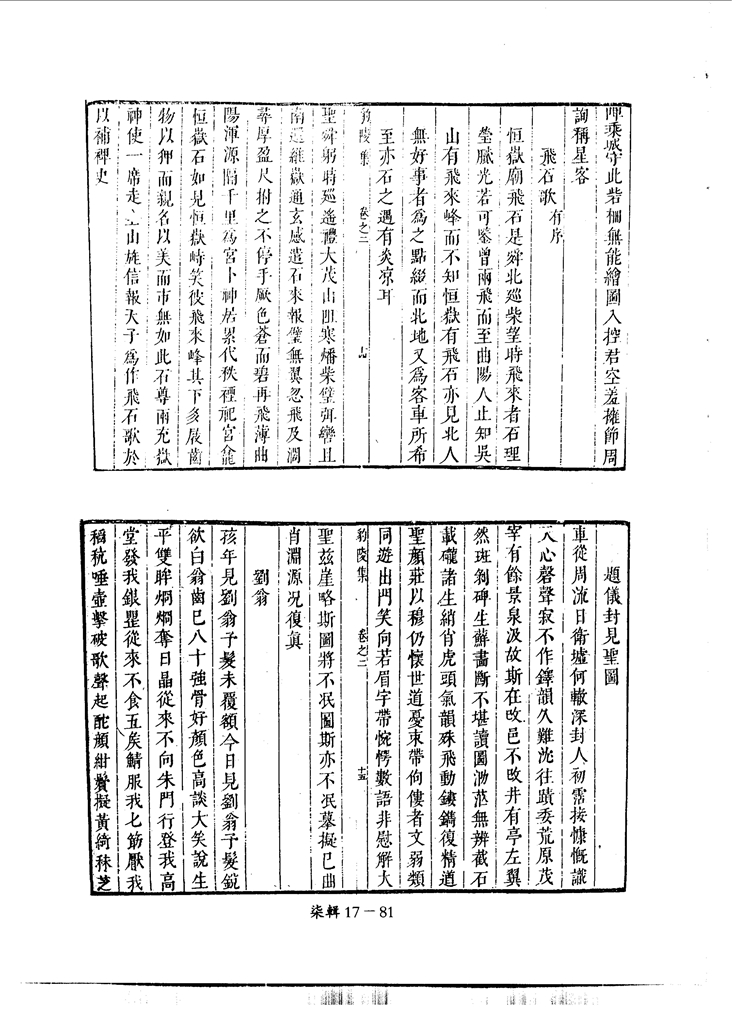 乘城守此砦柵無能繪圖入控君空羞擁節周
詢稱星客
飛石歌有序
恒嶽廟飛石是舜北巡柴望時飛來者石理
瑩膩光若可鑒曾兩飛而至曲陽人止知吳
山有飛來峰而不知恒嶽有飛石亦見北人
無好事者為之點綴而北地又為客車所希
至亦石之遇有炎凉耳
豹陵集 卷之三 十四
聖舜躬時巡遙禮大茂山阻寒燔柴璧弭轡且
南還維嶽通玄感遣石來報璧無翼忽飛及澗
蓴厚盈尺拊之不停手厥色蒼而碧再飛薄曲
陽渾源隔千里為宮卜神居累代秩禋祀宮龕
恒嶽石如見恒嶽峙笑彼飛來峰其下多屐齒
物以狎而親名以美而市無如此石尊兩充嶽
神使一席走山旌信報天子為作飛石歌於
以補稗史
題儀封見聖圖
車從周流日衛墟何轍深封人初霑接慷慨識
天心磬聲寂不作鐸韻久難沈往蹟委荒原茂
宰有餘景泉汲故斯在改邑不改井有亭左翼
然班剝碑生蘚畵斷不堪讀圖泐范無辨截石
載礲諸生綃肖虎頭氣韻殊飛動鏤鐫復精道
聖顏莊以穆仍懷世道憂束帶佝僂者文弱類
同遊出門笑向若眉宇帶惋愕數語非慰解大
豹陵集 卷之三 十五
聖茲崖略斯圖將不泯圖斯亦不泯墓擬已曲
肖淵源况復眞
劉翁
孩年見劉翁子髮未覆額今日見劉翁子髮鏡
欲白翁齒已八十強骨好顏色高談大笑說生
平雙眸烱烱奪日晶從來不向朱門行登我高
堂發我銀罌從來不食五矦鯖服我匕筯厭我
稻秔唾壺擊破歌聲起酡顏紺鬢擬黃綺秣芝
柒輯 17－81